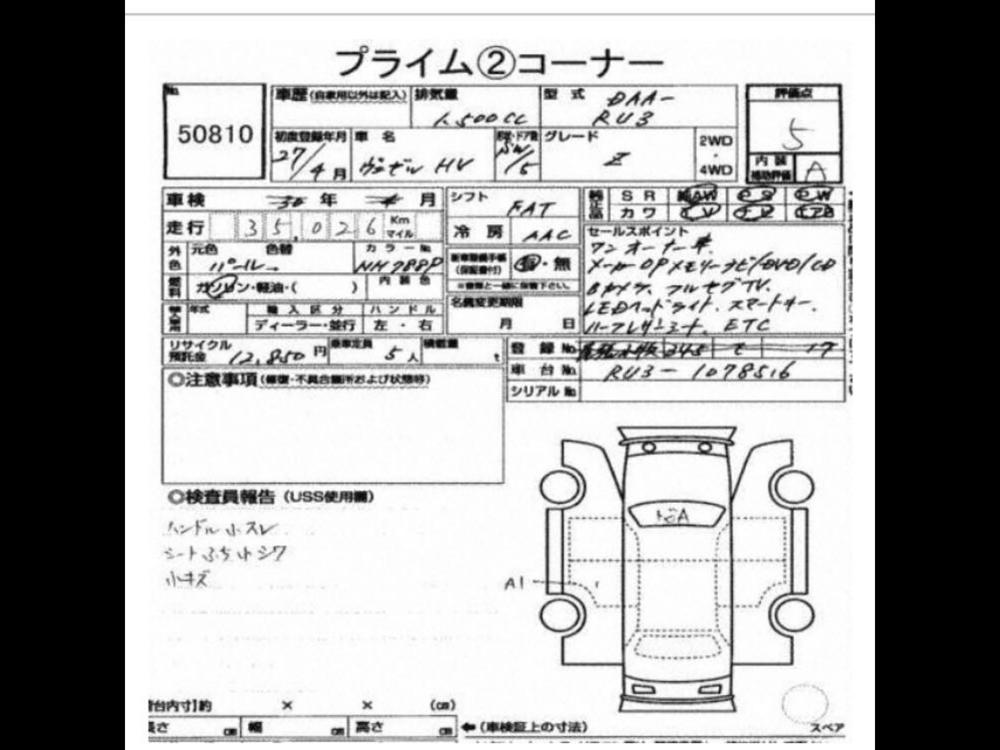 プライム②コーナー
No.
50810
車歴 (自家用以外は記入)
排気量
1,500cc
型式
DAA-
RU3
評価点
5
初度登録年月
27/4月
車名
ヴェゼル HV
/5
グレード
Z
2WD
・
4WD
内装
補助評価
A
車検
年 月
シフト
FAT
純正品
SR AW PS PW
カワ TV
走行
35,026
Km
マイル
冷房
AAC
セールスポイント
ワンオーナー車
メーカーOPメモリーナビ/DVD/CD
Bカメラ、フルセグTV.
LEDヘッドライト、スマートキー.
ハーフレザーシート、ETC
外色
元色
色替
パール
カラーNo.
NH788P
新車整備手帳
(保証書付)
有・無
※書類と一緒に保管下さい。
燃料
ガソリン・軽油・( )
内装色
名義変更期限
月 日
輸入車用
年式
輸入区分
ハンドル
ディーラー・並行
左・右
リサイクル
預託金
12,850円
乗車定員
5人
積載量
t
登録No.
車台No.
RU3-1078516
シリアルNo.
◎注意事項 (修復・不具合箇所および状態等)
◎検査員報告 (USS使用欄)
ハンドル小スレ
シートふち小シワ
小キズ
トビA
A1
荷台内寸】約 × × (cm)
長さ cm 幅 cm 高さ cm
←(車検証上の寸法)
スペア